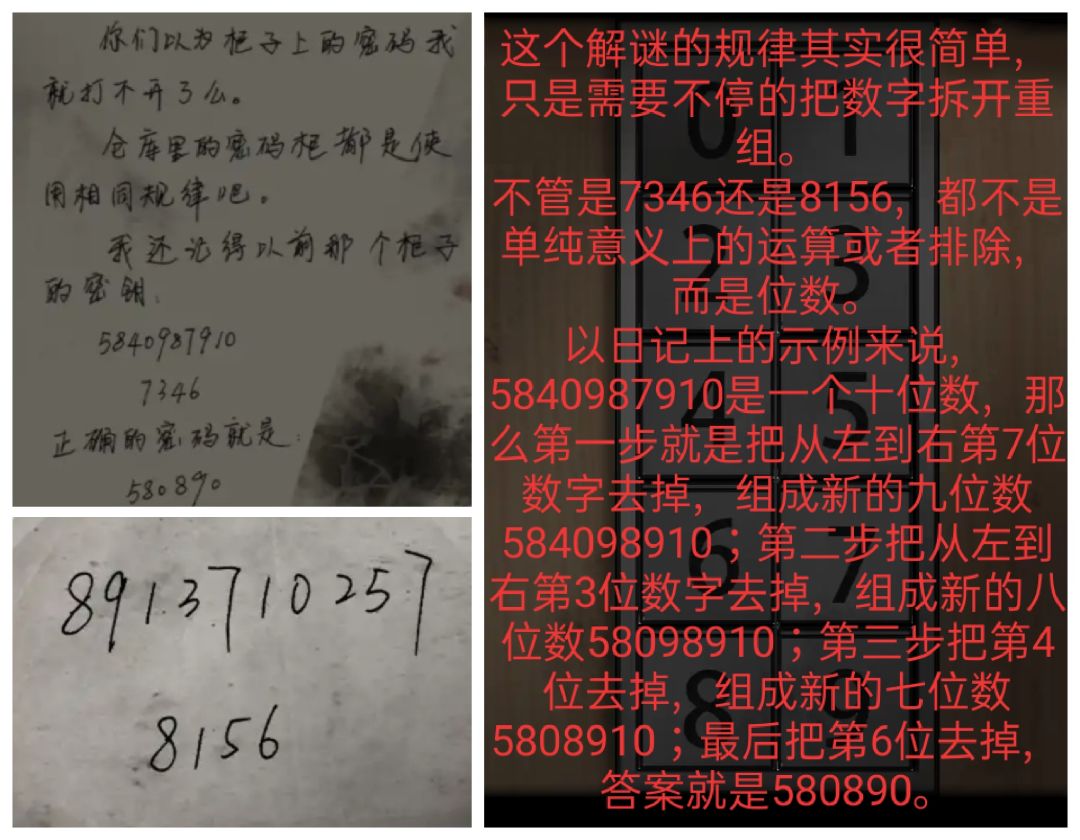 你们以为柜子上的密码我
就打不开了么。
仓库里的密码柜都是使
用相同规律吧。
我还记得以前那个柜子
的密钥:
5840987910
7346
正确的密码就是:
580890
89137710257
8156
这个解谜的规律其实很简单，
只是需要不停的把数字拆开重
组。
不管是7346还是8156，都不是
单纯意义上的运算或者排除，
而是位数。
以日记上的示例来说，
5840987910是一个十位数，那
么第一步就是把从左到右第7位
数字去掉，组成新的九位数
584098910；第二步把从左到
右第3位数字去掉，组成新的八
位数58098910；第三步把第4
位去掉，组成新的七位数
5808910；最后把第6位去掉，
答案就是580890。
0 1
2 3
4 5
6 7
8 9